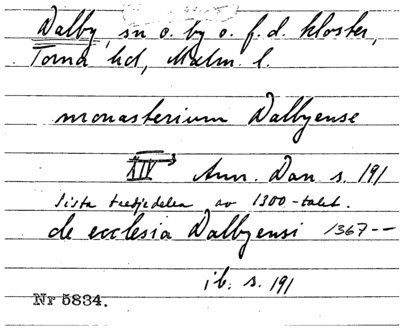 Dalby, sn o. by o. f.d. kloster,
Torna hd, Malm. l.
monasterium Dalbyense
XIV Ann. Dan. s. 191
sista tredjedelen av 1300-talet.
de ecclesia Dalbyensi 1367--
ib. s. 191
Nr 5834.